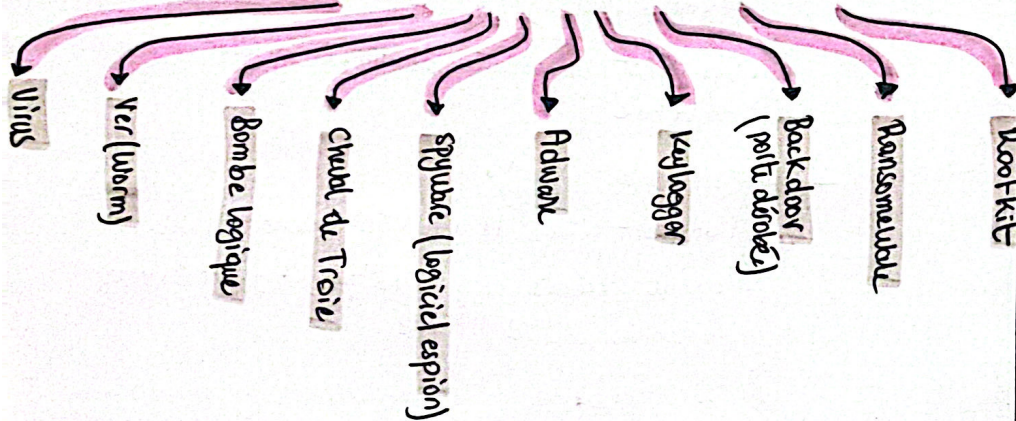 Virus
Ver (Worm)
Bombe logique
Cheval de Troie
Spyware (logiciel espion)
Adware
Keylogger
Backdoor
(porte dérobée)
Ransomeware
Rootkit